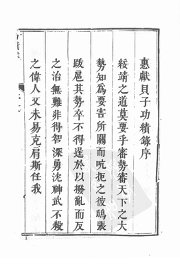 惠獻貝子功績錄序
綏靖之道莫要乎審勢審天下之大
勢知為要害所關而吭扼之彼鴟張
跋扈其勢卒不得逞於以撥亂而反
之治無難非得智深勇沈神武不殺
之偉人又未易克肩斯任我